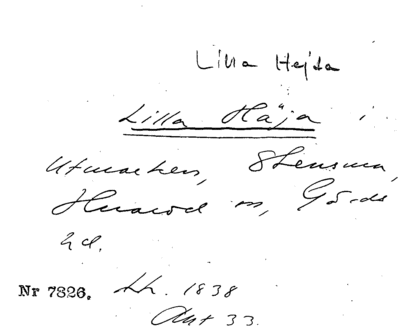 Lilla Hejda
Lilla Häja i
Utmarken, Stensma,
Hvarod sn, Gärds
hd.
Nr 7326. LH. 1838
Akt 33.